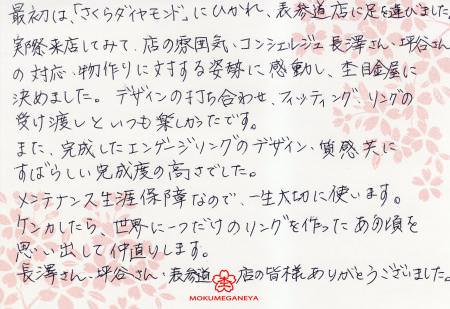 最初は、「さくらダイヤモンド」にひかれ、表参道店に足を運びました。
実際来店してみて、店の雰囲気、コンシェルジュ長澤さん、坪谷さん
の対応、物作りに対する姿勢に感動し、杢目金屋に
決めました。デザインの打ち合わせ、フィッティング、リングの
受け渡しといつも楽しかったです。
また、完成したエンゲージリングのデザイン、質感共に
すばらしい完成度の高さでした。
メンテナンス生涯保障なので、一生大切に使います。
ケンカしたら、世界に一つだけのリングを作ったあの頃を
思い出して仲直りします。
長澤さん、坪谷さん、表参道店の皆様ありがとうございました。
MOKUMEGANEYA